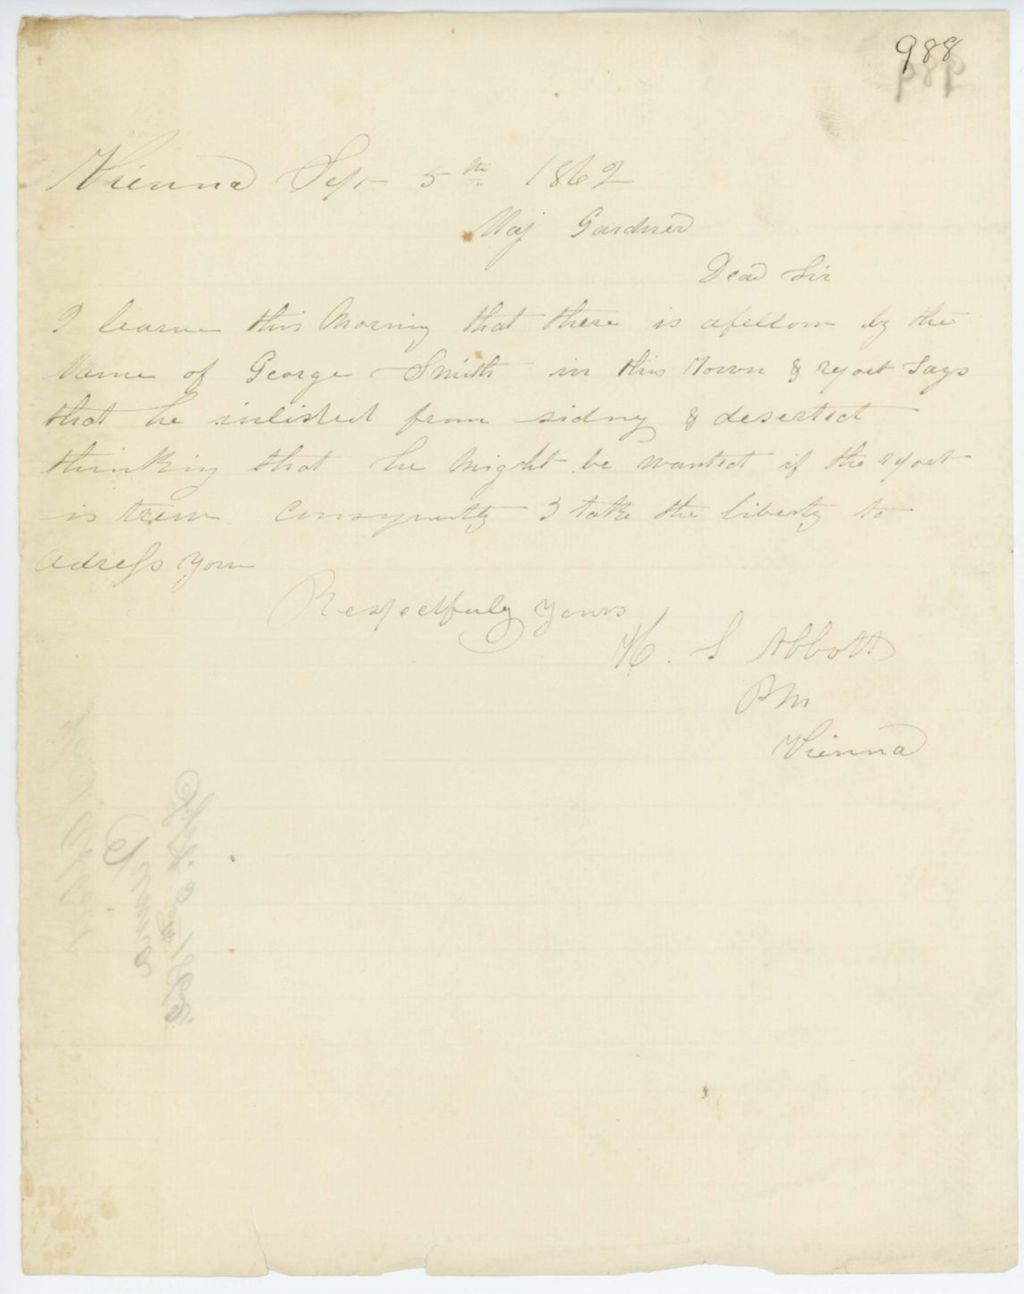 988
Vienna Sept 5th 1862
Maj Gardner
Dear Sir
I learne this Morning that there is afellow by the
Name of George Smith in this Town & report Says
that he inlisted from sidny & deserted
thinking that he Might be wanted if the report
is true Consequently I take the liberty to
adress you
Respectfuly yours
H. S Abbott
P M
Vienna